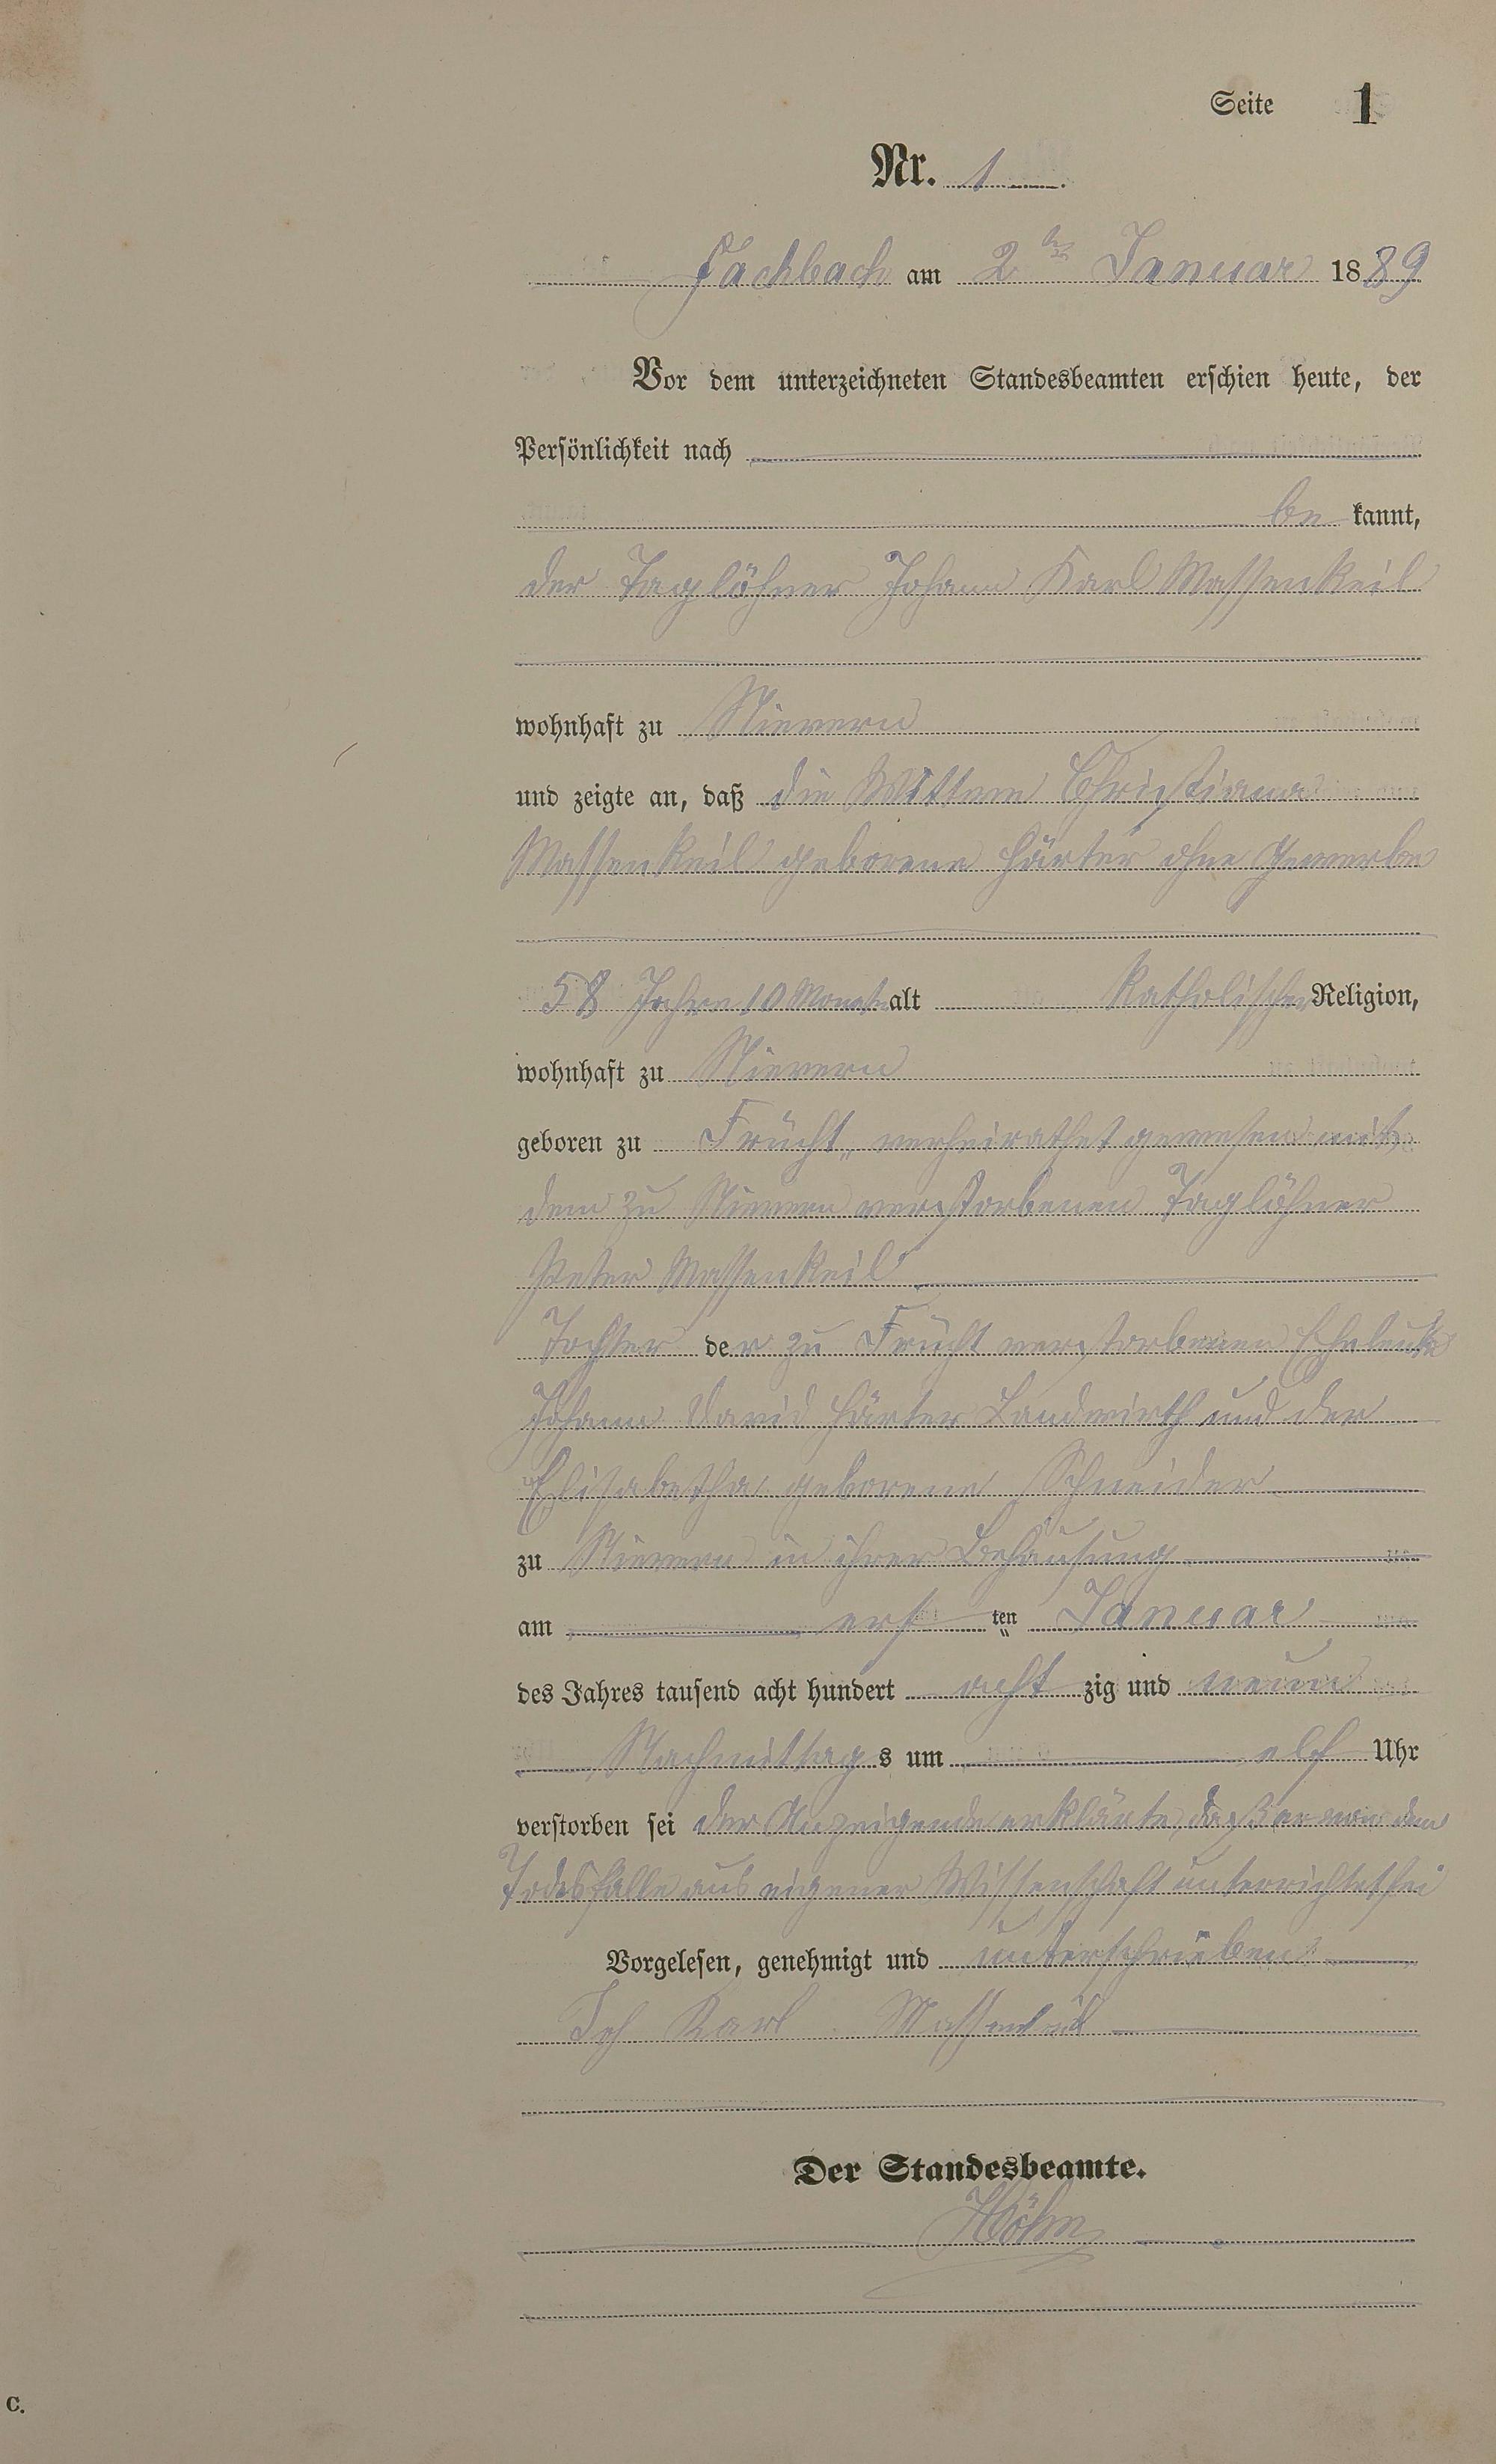 Seite 1
Nr. 1
Fachbach am 2ten Januar 1889
Vor dem unterzeichneten Standesbeamten erschien heute, der
Persönlichkeit nach
be kannt,
der Taglöhner Johann Karl Massenkeil
wohnhaft zu Nievern
und zeigte an, daß die Wittwe Christiana
Massenkeil geborene Härter ohne Gewerbe
58 Jahre 10 Monate alt katholischer Religion,
wohnhaft zu Nievern
geboren zu Frücht, verheirathet gewesen mit
dem zu Nievern verstorbenen Taglöhner
Peter Massenkeil
Tochter der zu Frücht verstorbenen Eheleute
Johann David Härter Landwirth und der
Elisabetha geborene Schneider
zu Nievern in ihrer Behausung
am ersten Januar
des Jahres tausend acht hundert acht zig und neun
Nachmittags um elf Uhr
verstorben sei der Anzeigende erklärte, daß er von dem
Todesfalle aus eigener Wissenschaft unterrichtet sei
Vorgelesen, genehmigt und unterschrieben
Joh Karl Massenkeil
Der Standesbeamte.
Höhn
C.